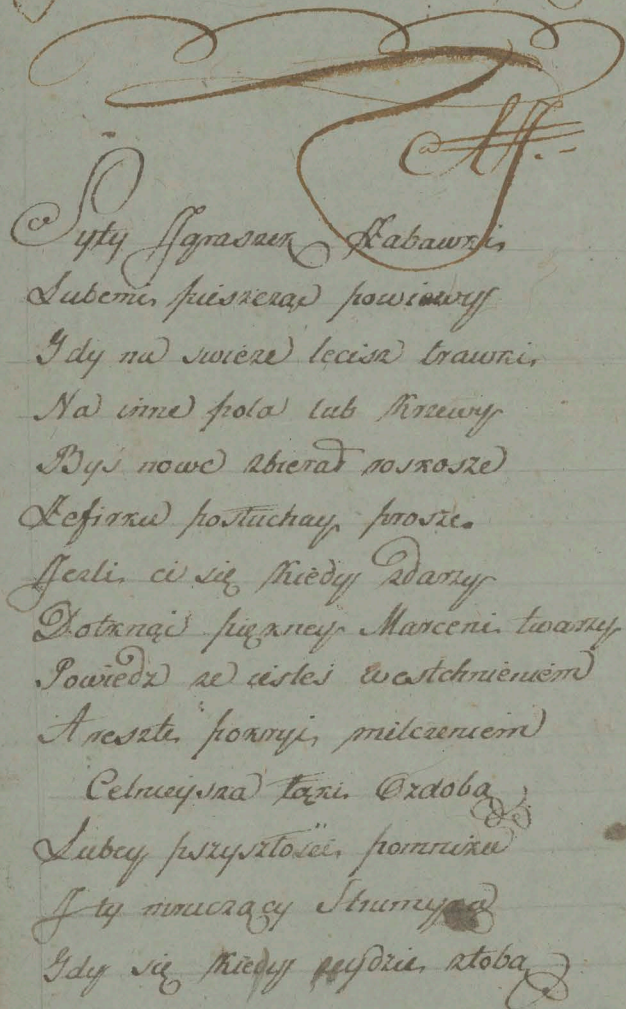 Syty Jgraszek Zabawki
Lubemi pieszcząc powiewy
Gdy na swieze lecisz trawki
Na inne pola lub krzewy
Byś nowe zbierał roskosze
Zefirku posłuchay prosze.
Jezli ci się kiedy zdarzy
Dotknąć piękney Marceni twarzy
Powiedz ze iesteś westchnieniem
A reszte pokryi milczeniem
Celnieysza łąki Ozdoba
Lubey pszyszłości pomniku
J ty mruczący
Gdy się kiedy złoba